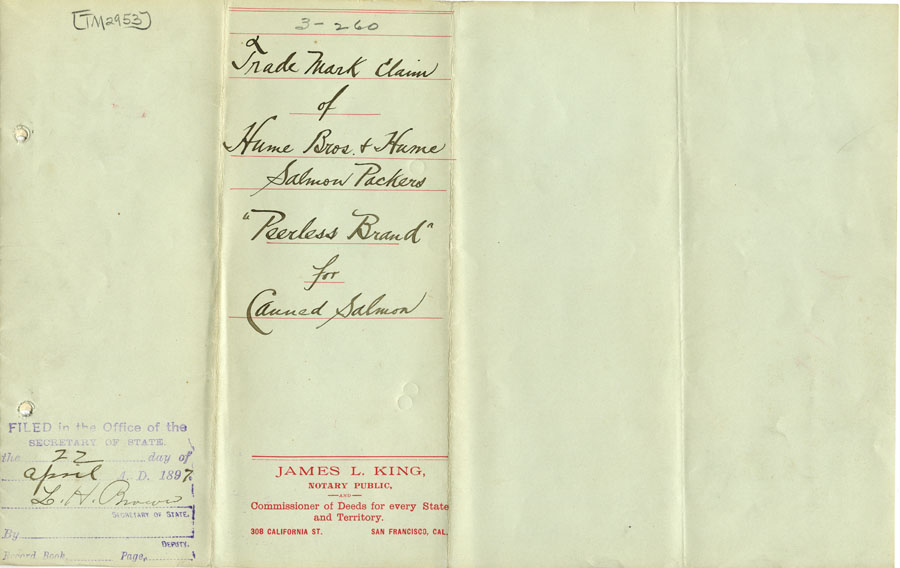 [TM2953]
3-260
Trade Mark Claim
of
Hume Bros. & Hume
Salmon Packers
"Peerless Brand"
for
Canned Salmon
FILED in the Office of the
SECRETARY OF STATE.
the 22 day of
April A. D. 1897
L. H. Brown
SECRETARY OF STATE.
By
DEPUTY.
Record Book Page
JAMES L. KING,
NOTARY PUBLIC,
—AND—
Commissioner of Deeds for every State
and Territory.
308 CALIFORNIA ST. SAN FRANCISCO, CAL.